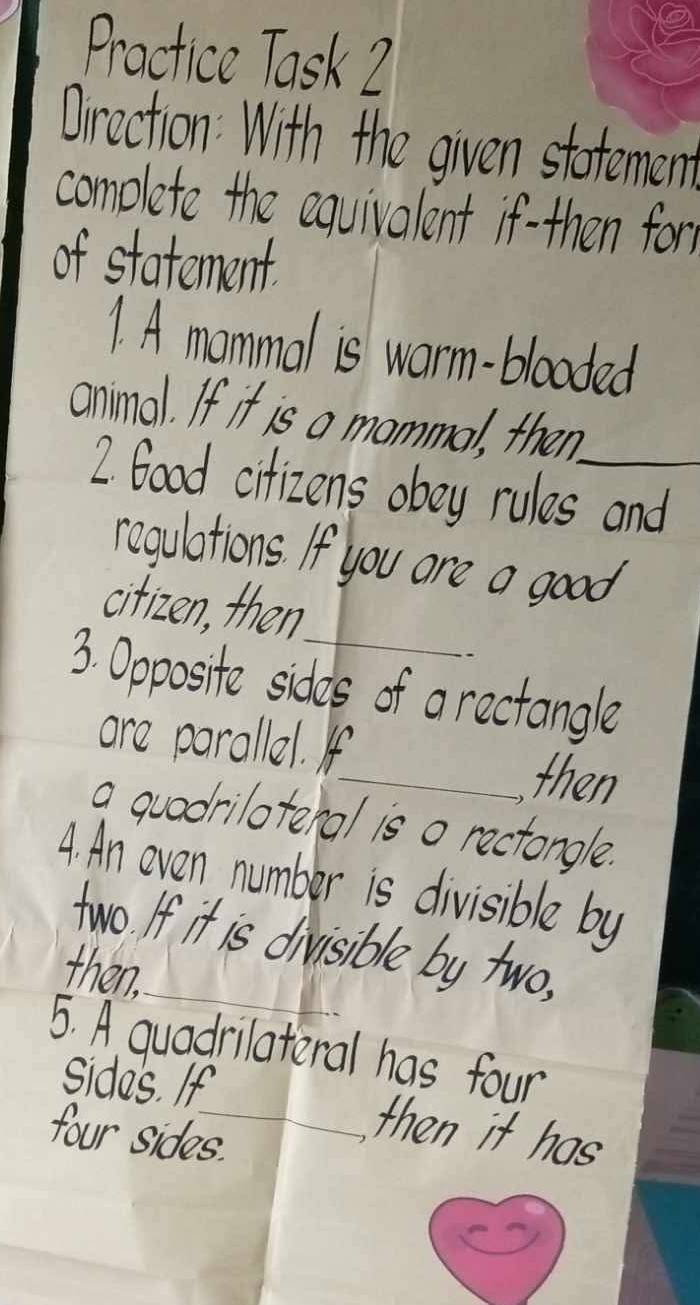 Practice Task 2
Direction: With the given statement,
complete the equivalent if-then
of statement.
1. A mammal is warm-blooded
animal. If it is a mammal, then______
2. Good citizens obey rules and
regulations. If you are a good
citizen, then______.
3. Opposite sides of a rectangle
are parallel. If______, then
a quadrilateral is a rectangle.
4. An even number is divisible by
two. If it is divisible by two,
then,______.
5. A quadrilateral has four
sides. If______, then it has
four sides.